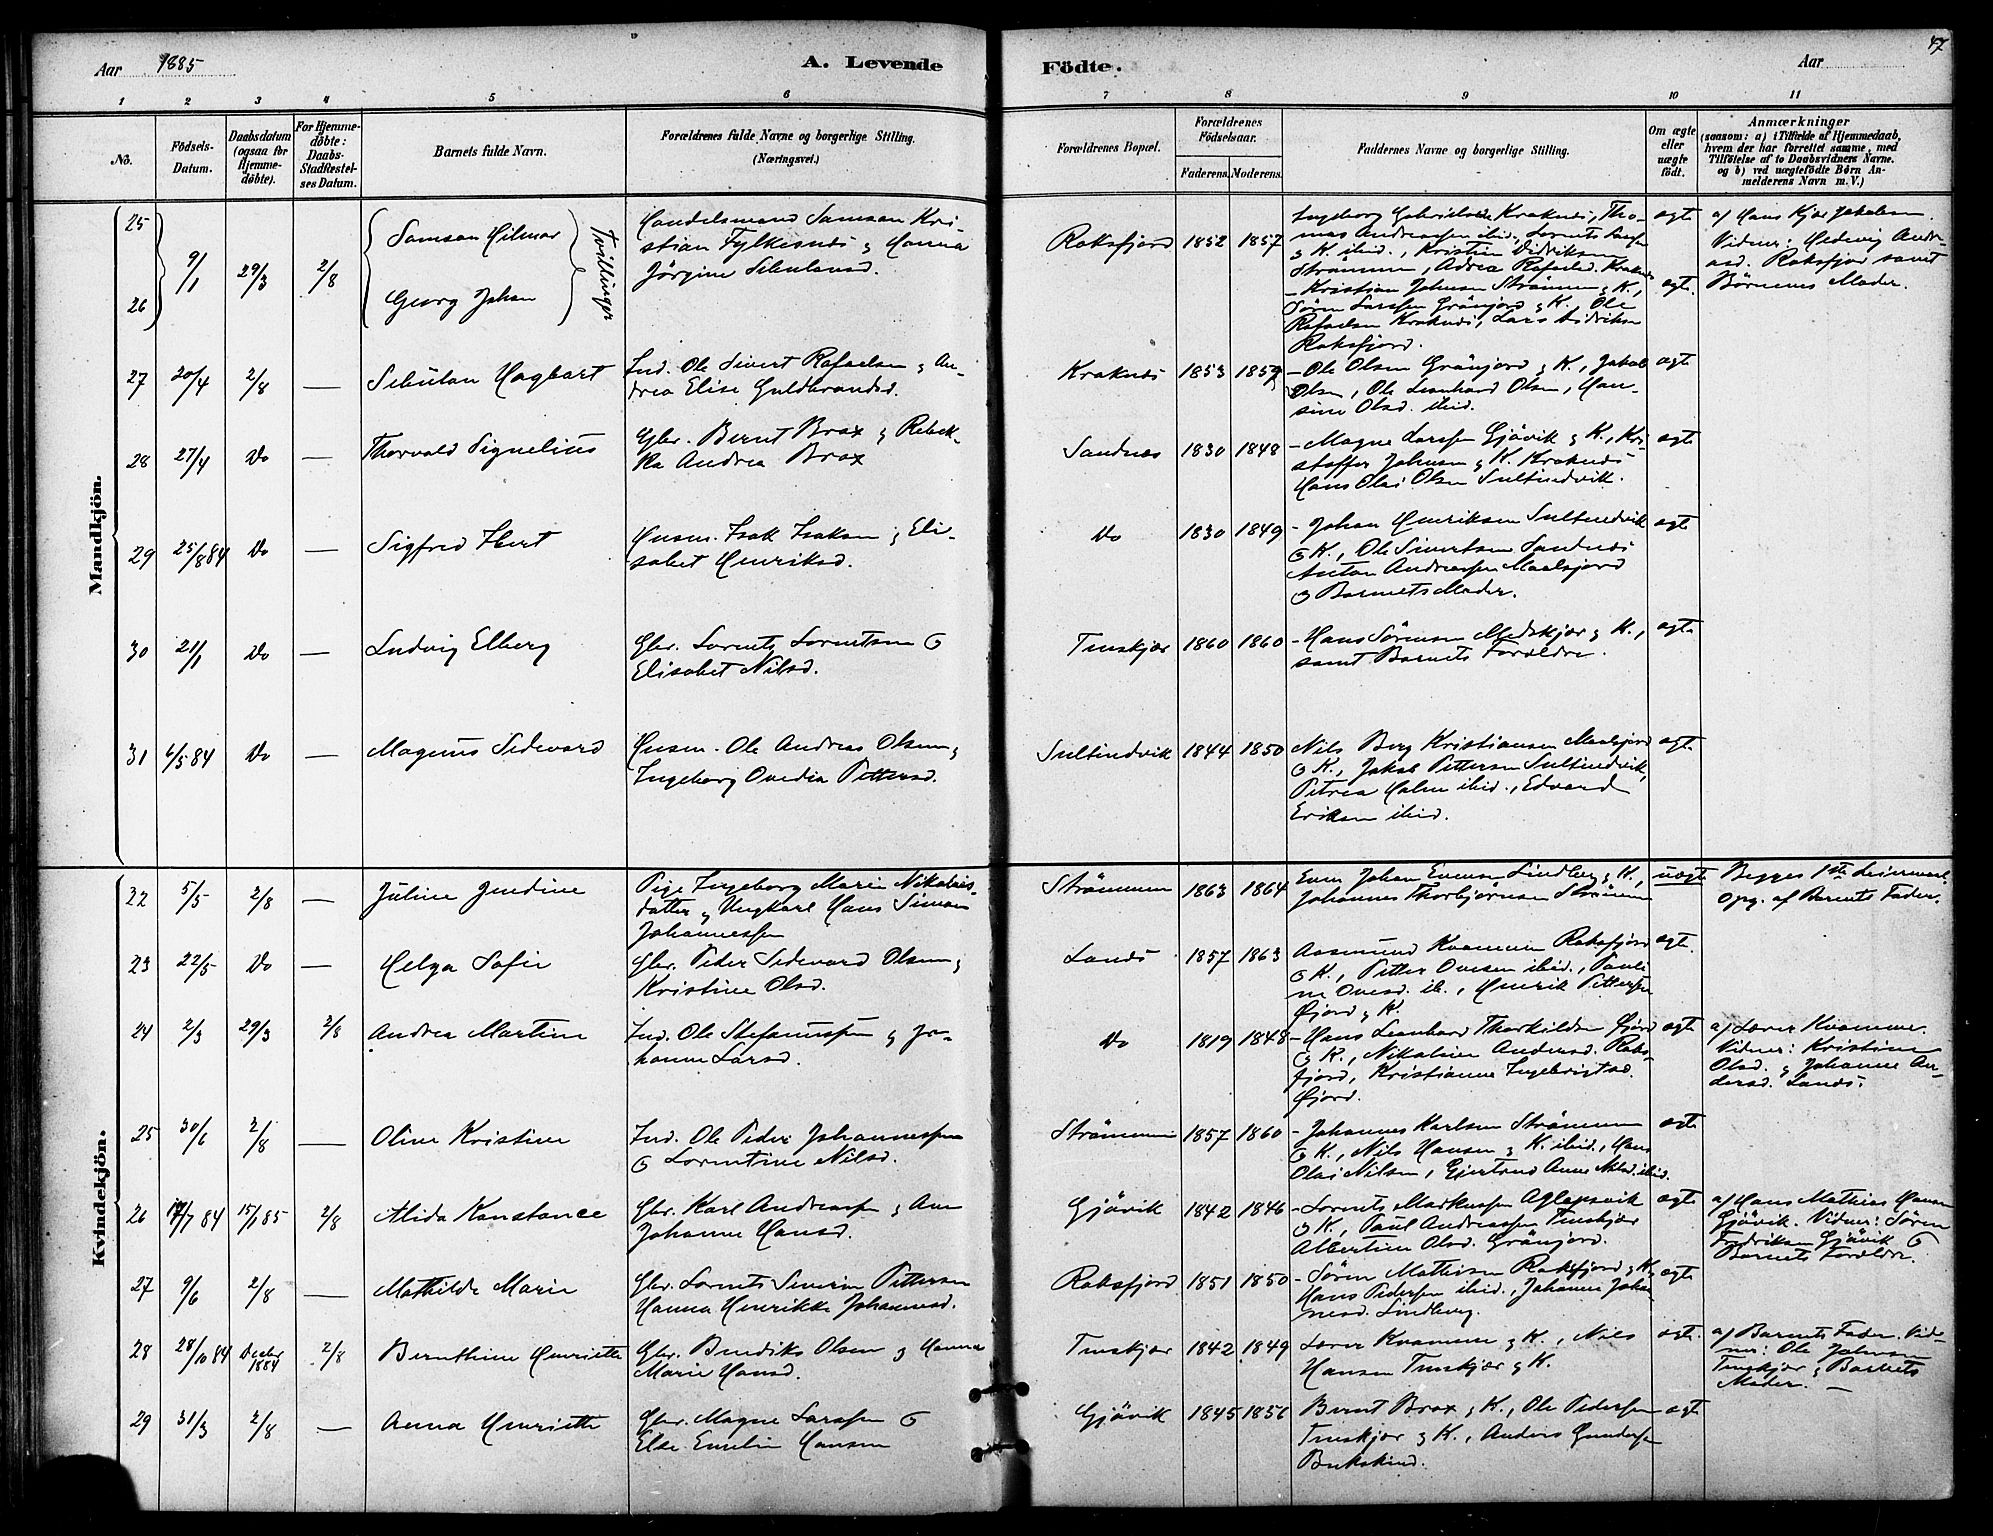 47
Aar 1885
A. Levende
Födte.
Aar
1 2 3 4 5 6 7 8 9 10 11
No.
Födsels-
Datum.
Daabsdatum
(ogsaa for
Hjemme-
döbte).
For Hjemme-
döbte:
Daabs-
Stadfæstel-
ses Datum.
Barnets fulde Navn.
Forældrenes fulde Navne og borgerlige Stilling.
(Næringsvei.)
Forældrenes Bopæl.
Forældrenes
Födselsaar.
Faderens. Moderens.
Faddernes Navne og borgerlige Stilling.
Om ægte
eller
uægte
födt.
Anmærkninger
(saasom: a) i Tilfælde af Hjemmedaab,
hvem der har forrettet samme, med
Tilföielse af to Daabsvidners Navne.
og b) ved uægtefödte Börn An-
melderens Navn m.V.)
Mandkjön.
25
26
9/1 29/3 2/8
Samson Hilmar
Georg Johan
Tvillinger
Handelsmand Samson Kri-
stian Fylkesnes & Hanna
Jörgine Schulansd.
Raksfjord 1852 1857
Ingeborg Gabrielsen Kraknes, Tho-
mas Andreassen ibid., Lorents Larsen
& K. ibid., Kristian Didriksen
Strömmen, Adrea Rafaelsd. Kraknes
- Kristian Johnsen Strömmen & K.,
Sören Larssen Grönjord & K., Ole
Rafaelsen Kraknes, Lars Didriksen
Raksfjord.
ægte
ægte.
a/ Hans Kjær Jakobsen.
Vidner: Hedevig Andr-
asd. Raksfjord samt
Børnenes Moder.
27 20/4 2/8 — Schulan Hagbart
Ind. Ole Sivert Rafaelsen & An-
drea Elise Guldbrandsd.
Kraknes 1853 1859
- Ole Olsen Grönjord & K., Jakob
Olsen, Ole Leonhard Olsen, Han-
sine Olsd. ibid.
ægte
28 27/4 Do — Thorvald Signelius
Gbr. Bernt Brox & Rebek-
ka Andrea Brox
Sandnes 1830 1848
- Magne Larssen Gjövik & K., Kri-
stoffer Johnsen & K. Kraknes
Hans Olai Olsen Sultindvik.
ægte
29 25/8 84 Do — Sigfred Hert
Husm. Isak Isaksen & Eli-
sabet Henriksd.
Do 1830 1849
- Johan Henriksen Sultindvik
& K., Ole Sivertsen Sandnes
Anton Andreassen Maalsjord
& Barnets Moder.
ægte
30 21/1 Do — Ludvig Elberg
Gbr. Lorents Lorentsen &
Elisabet Nilsd.
Tenskjær 1860 1860
- Hans Sörensen Medskjær & K.,
samt Barnets Forældre.
ægte
31 6/5 84 Do — Magnus Sedevard
Husm. Ole Andreas Olsen &
Ingeborg Ovedia Pettersd.
Sultindvik 1844 1850
Nils Berg Kristiansen Maalsjord
& K., Jakob Pettersen Sultindvik,
Petrea Holm ibid., Edvard
Eriksen ibid.
ægte
Kvindekjön.
22 5/5 2/8 — Juline Jendine
Pige Ingeborg Marie Nikolais-
datter & Ungkarl Hans Simon
Johannessen
Strömmen 1863 1864
Even Johan Evensen Lindberg & K.,
Johannes Thorbjörnsen Strömmen
uægte
Begges 1ste Leiermaal.
Opg. af Barnets Fader.
23 22/5 Do — Helga Sofie
Gbr. Peder Sedevard Olsen &
Kristine Olsd.
Lands 1857 1863
Aasmund Kvammen Raksfjord
& K., Petter Ovesen ibid., Pauli-
ne Ovesd. ib., Henrik Pettersen
Gjord & K.
ægte
24 2/3 29/3 2/8 Andrea Martine
Ind. Ole Stefanussen & Jo-
hanne Larsd.
Do 1819 1848
- Hans Leonhard Thorkildsen Gjord
& K., Nikoline Andersd. Raks-
fjord, Kristianne Ingebrigtsd.
Gjord.
ægte
a/ Lærer Kvammen.
Vidner: Kristine
Olsd. & Johanne An-
dersd. Lands.
25 30/6 2/8 — Oline Kristine
Ind. Ole Peder Johannessen
& Lorentine Nilsd.
Strömmen 1857 1860
- Johannes Karlsen Strömmen
& K., Nils Hansen & K. ibid., Hans
Olai Nilsen, Gjertrud Anne Nilsd. ibid.
ægte
26 17/7 84 15/1 85 2/8 Alida Konstance
Gbr. Karl Andreassen & Ane
Johanne Hansd.
Gjövik 1842 1846
- Lorents Markussen Aglapsvik
& K., Paul Andreassen Tenskjær
Albertine Olsd. Grönjord.
ægte
a/ Hans Mathias Hansen
Gjövik. Vidner: Sören
Fredriksen Gjövik &
Barnets Forældre
27 9/6 2/8 — Mathilde Marie
Gbr. Lorents Severin Pettersen
Hanna Henrikke Johannesd.
Raksfjord 1851 1850
- Sören Mathisen Raksfjord & K.,
Hans Pedersen ibid., Johanne Johan-
nesd. Lindberg.
ægte
28 28/10 84 Decbr 1884 2/8 Bernthine Henriette
Gbr. Bendiks Olsen & Hanna
Marie Hansd.
Tenskjær 1842 1849
Lærer Kvammen & K., Nils
Hansen Tenskjær & K.
ægte.
a/ Barnets Fader. Vid-
ner: Ole Johnsen
Tenskjær & Barnets
Moder. —
29 31/3 2/8 — Anna Henriette
Gbr. Magne Larssen &
Else Emelie Hansen
Gjövik 1845 1856
Bernt Brox & K., Ole Pedersen
Tenskjær & K., Anders Gundersen
Bukskind.
ægte